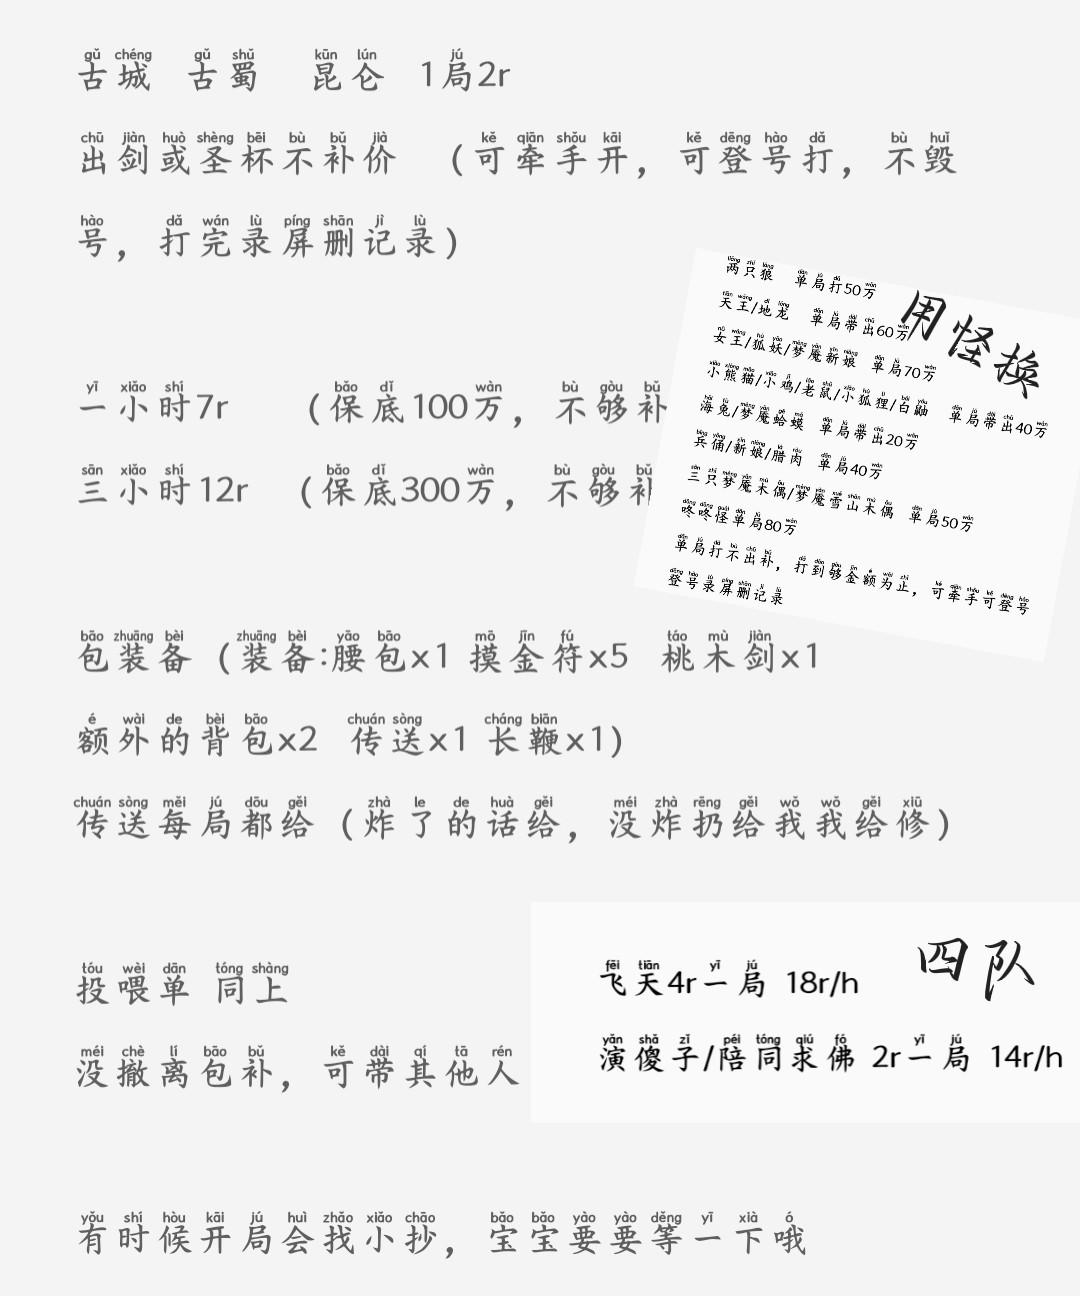 古城 古蜀 昆仑 1局2r
出剑或圣杯不补价 (可牵手开，可登号打，不毁
号，打完录屏删记录)
一小时7r (保底100万，不够补
三小时12r (保底300万，不够补
用怪换
两只狼 单局打50万
天王/地龙 单局带出60万
女王/狐妖/梦魇新娘 单局70万
小熊猫/小鸡/老鼠/小狐狸/白鼬 单局带出40万
海兔/梦魇蛤蟆 单局带出20万
兵俑/新娘/腊肉 单局40万
三只梦魇木偶/梦魇雪山木偶 单局50万
咚咚怪单局80万
单局打不出补，打到够金额为止，可牵手可登号
登号录屏删记录
包装备 (装备:腰包x1 摸金符x5 桃木剑x1
额外的背包x2 传送x1 长鞭x1)
传送每局都给 (炸了的话给，没炸扔给我我给修)
投喂单 同上
没撤离包补，可带其他人
四队
飞天4r一局 18r/h
演傻子/陪同求佛 2r一局 14r/h
有时候开局会找小抄，宝宝要要等一下哦